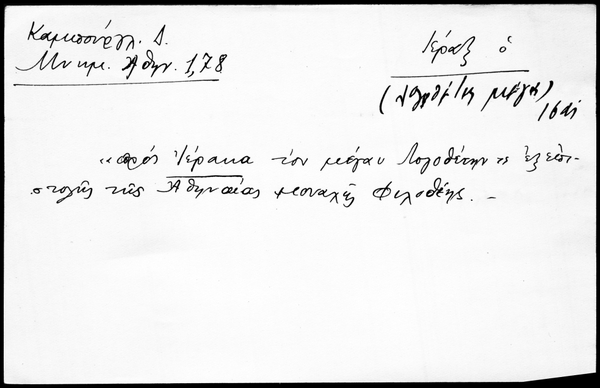 Καμπούργλ. Δ.
Μνημ. Ἀθην. 1,78
Ἱέραξ ὁ
( μέγας)
16 αἰ
"πρὸς Ἱέρακα τὸν μέγαν Λογοθέτην τε ἐξ ἐπι-
στολῆς τῆς Ἀθηναίας μοναχῆς Φιλοθέης. —